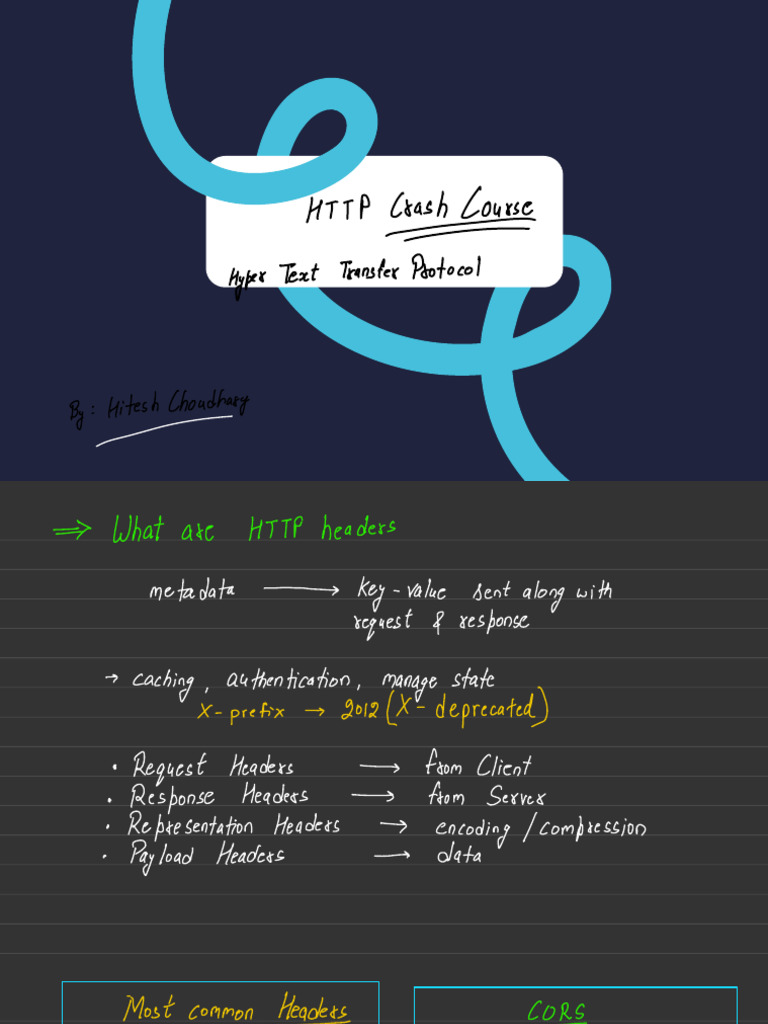 HTTP Crash Course
Hyper Text Transfer Protocol
By: Hitesh Choudhary
⇒ What are HTTP headers
metadata ⟶ key-value sent along with
request & response
→ caching, authentication, manage state
X-prefix → 2012 (X- deprecated)
• Request Headers ⟶ from Client
• Response Headers ⟶ from Server
• Representation Headers → encoding/compression
• Payload Headers ⟶ data
Most common Headers
CORS